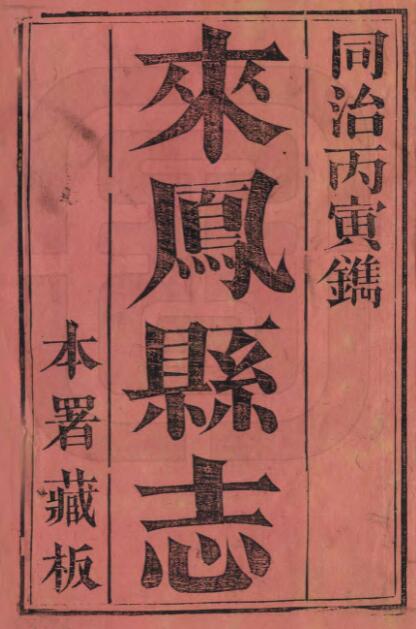 同治丙寅鐫
來鳳縣志
本署藏板